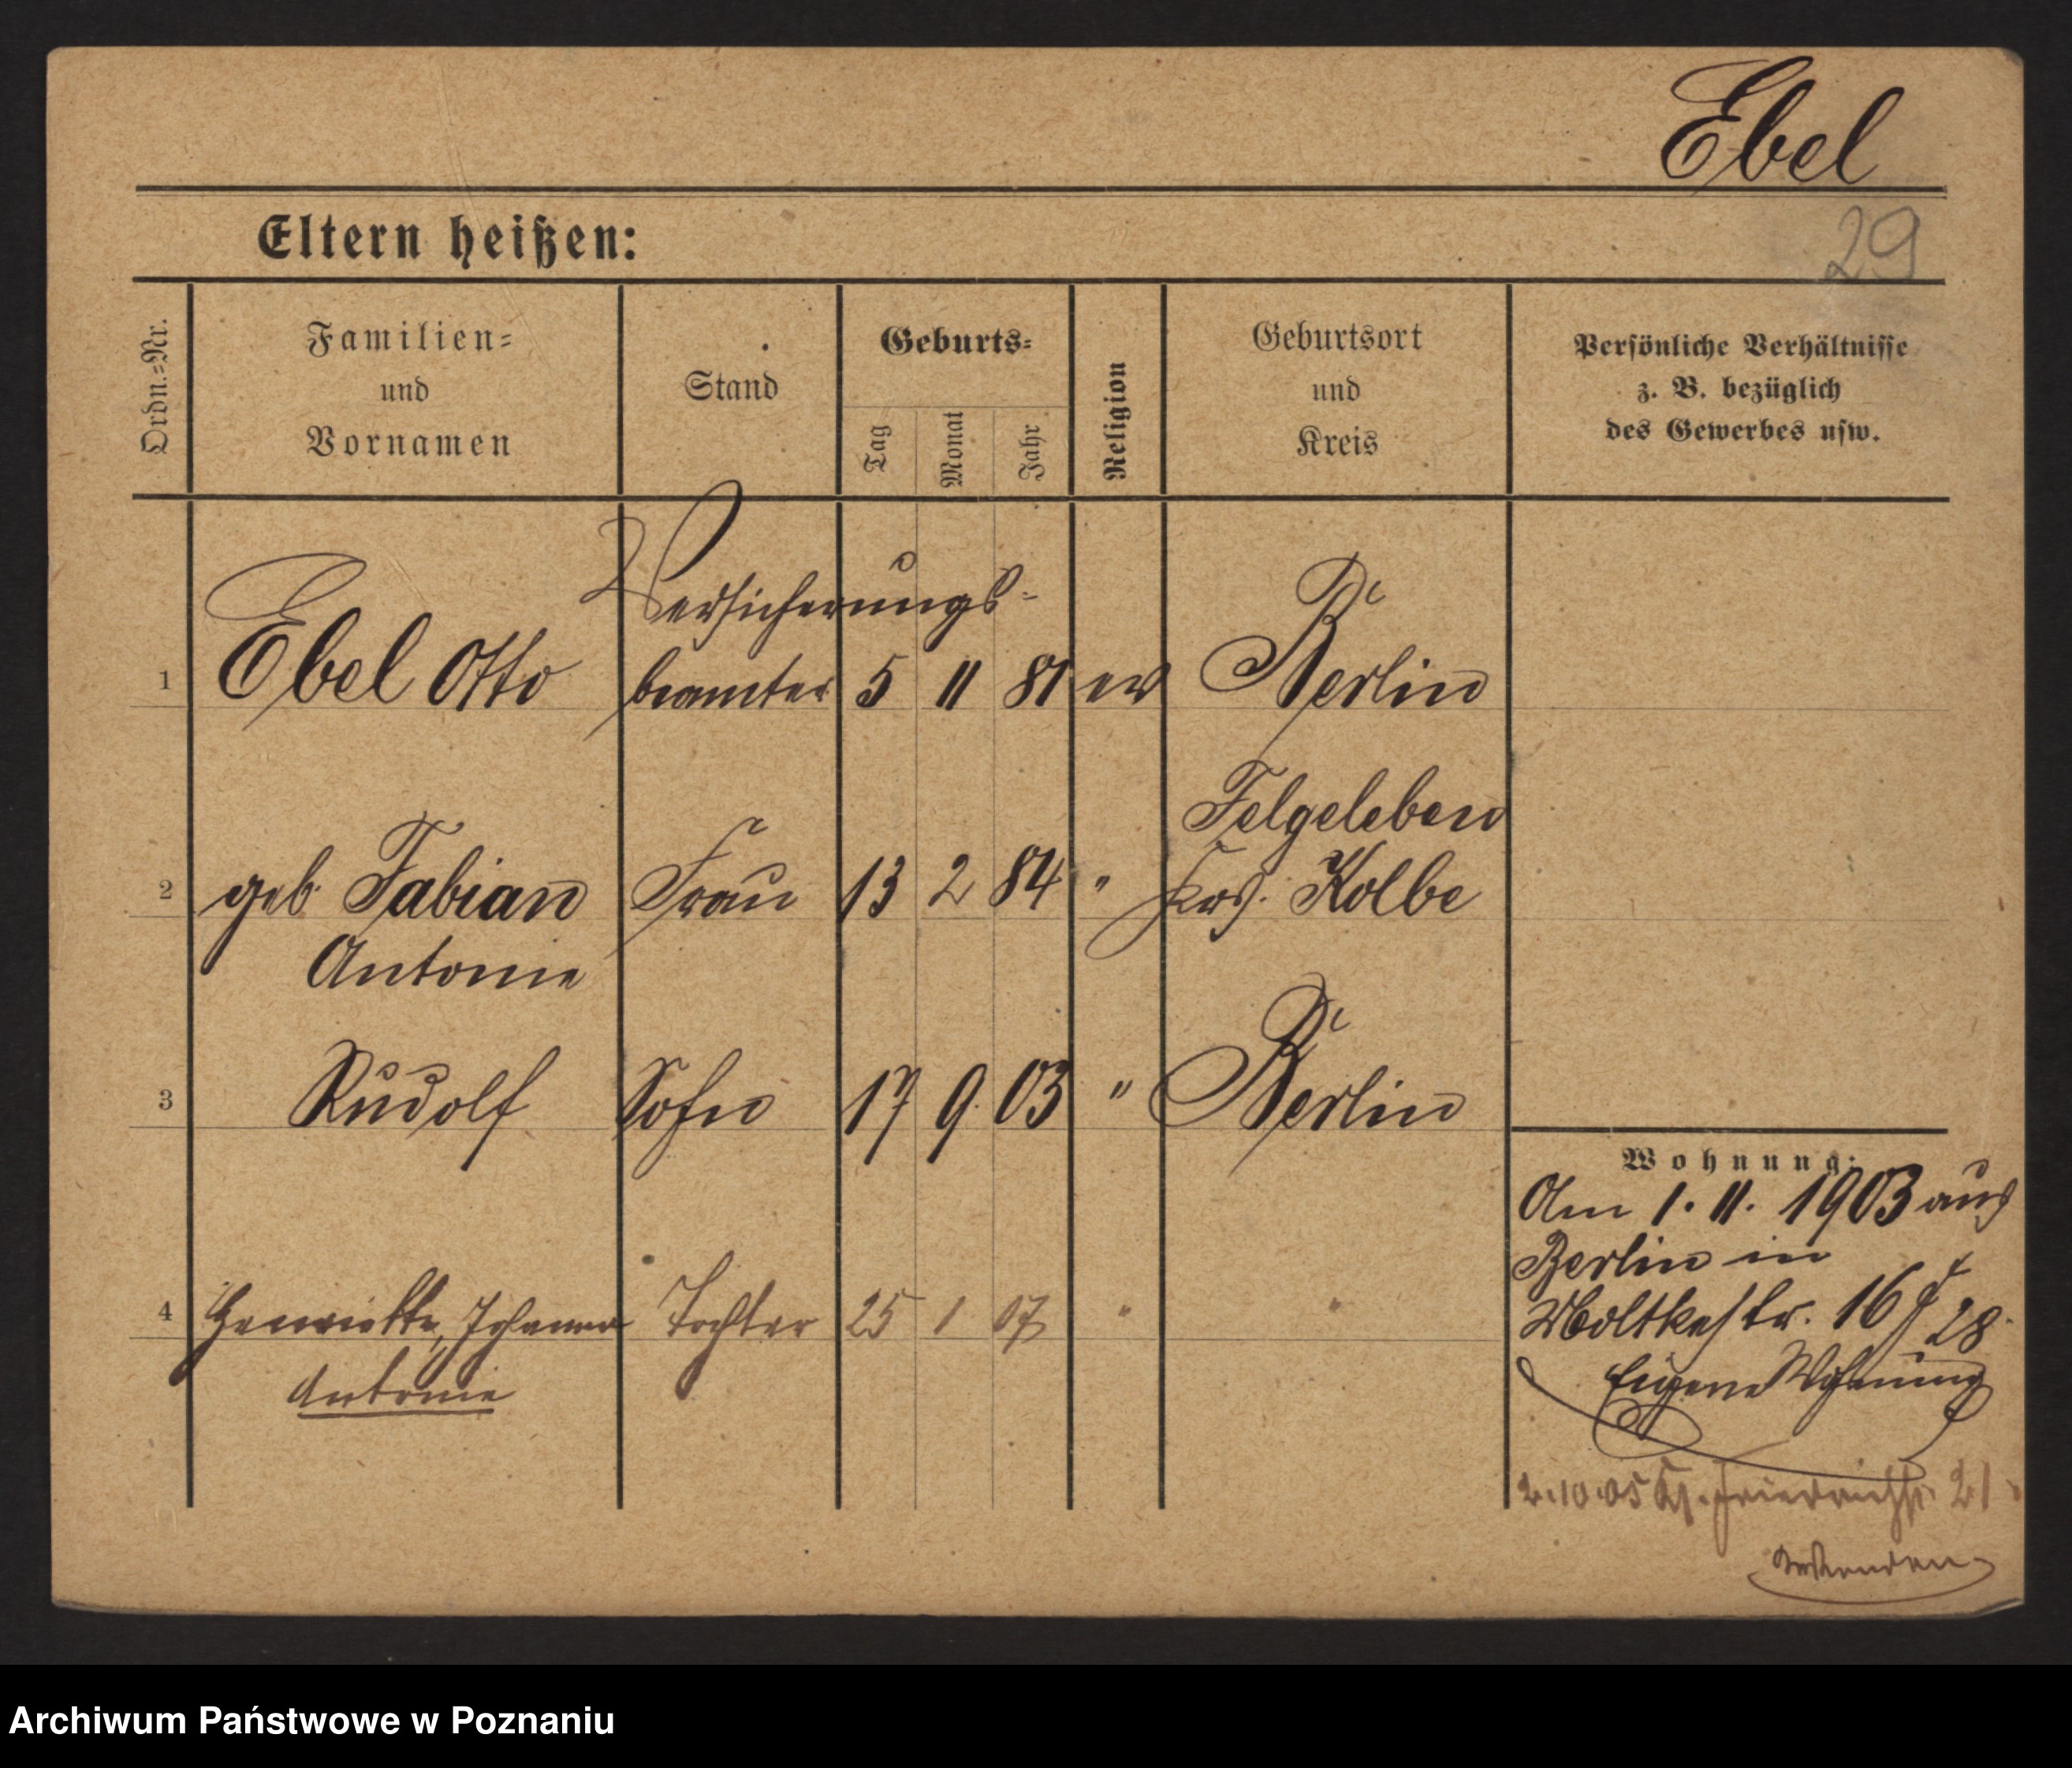 Ebel
29
Eltern heißen:
Ordn.-Nr.
Familien-
und
Vornamen
Stand
Geburts-
Tag
Monat
Jahr
Religion
Geburtsort
und
Kreis
Persönliche Verhältnisse
z. B. bezüglich
des Gewerbes usw.
Versicherungs-
1 Ebel Otto beamter 5 11 81 ev Berlin
Felgeleben
2 geb. Fabian Frau 13 2 84 " Krs. Kolbe
Antonie
3 Rudolf Sohn 17 9. 03 " Berlin
Wohnung:
Am 1. 11. 1903 aus
Berlin in
Moltkestr. 16 28.
4 Henriette, Johanna Tochter 25 1 07 " "
Eigene Wohnung
Antonie
2.10.05 Kl. Friedrichstr. 21
wenden
Archiwum Państwowe w Poznaniu